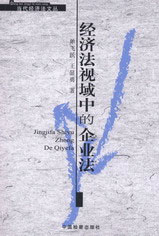 当代经济法文丛
王显勇 著
经济法视域中的企业法
Jingjifa Shiyu
Zhong
De Qiyefa
中国检察出版社